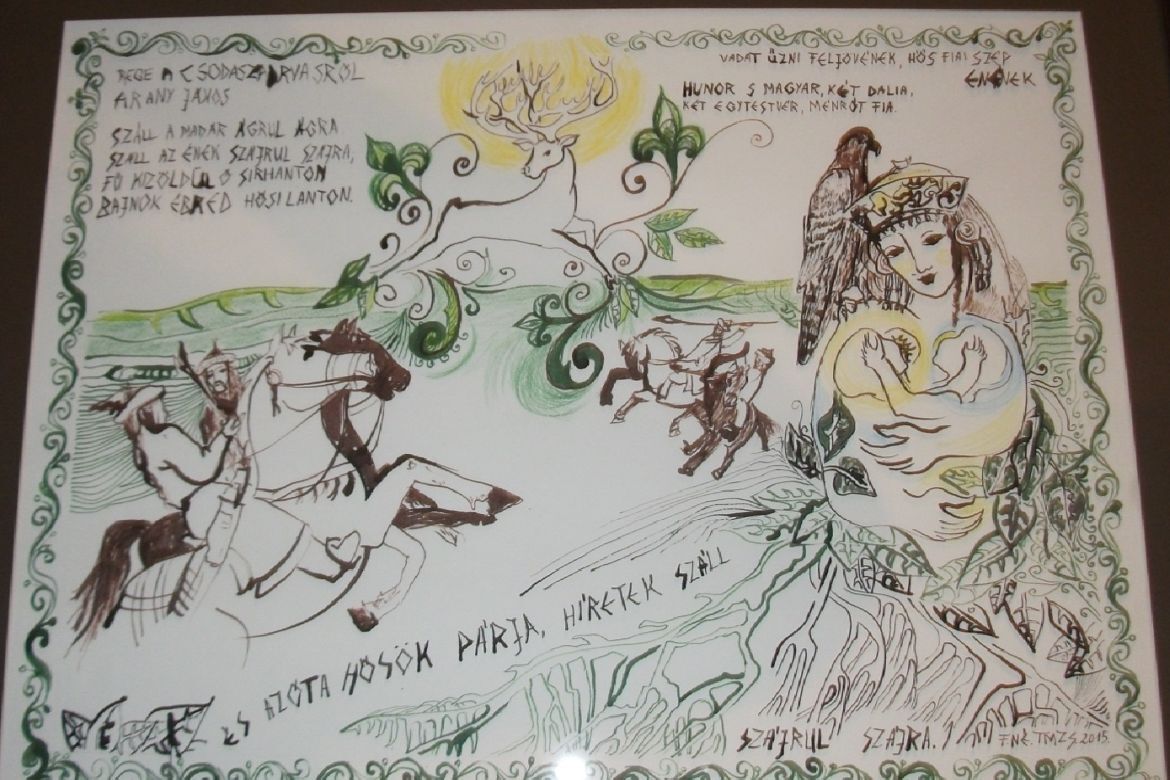 REGE A CSODASZARVASRÓL
ARANY JÁNOS
SZÁLL A MADÁR ÁGRUL ÁGRA
SZÁLL AZ ÉNEK SZÁJRUL SZÁJRA,
FŰ KIZÖLDÜL Ó SIRHANTON
BAJNOK ÉBRED HŐSI LANTON.
VADAT ŰZNI FELJÖVÉNEK, HŐS FIAI SZÉP
ENÉNEK
HUNOR S MAGYAR, KÉT DALIA,
KÉT EGYTESTVÉR, MÉNRÓT FIA.
ÉS AZÓTA HŐSÖK PÁRJA, HÍRETEK SZÁLL
SZÁJRUL SZÁJRA.
FNÉ. TMZS. 2015.